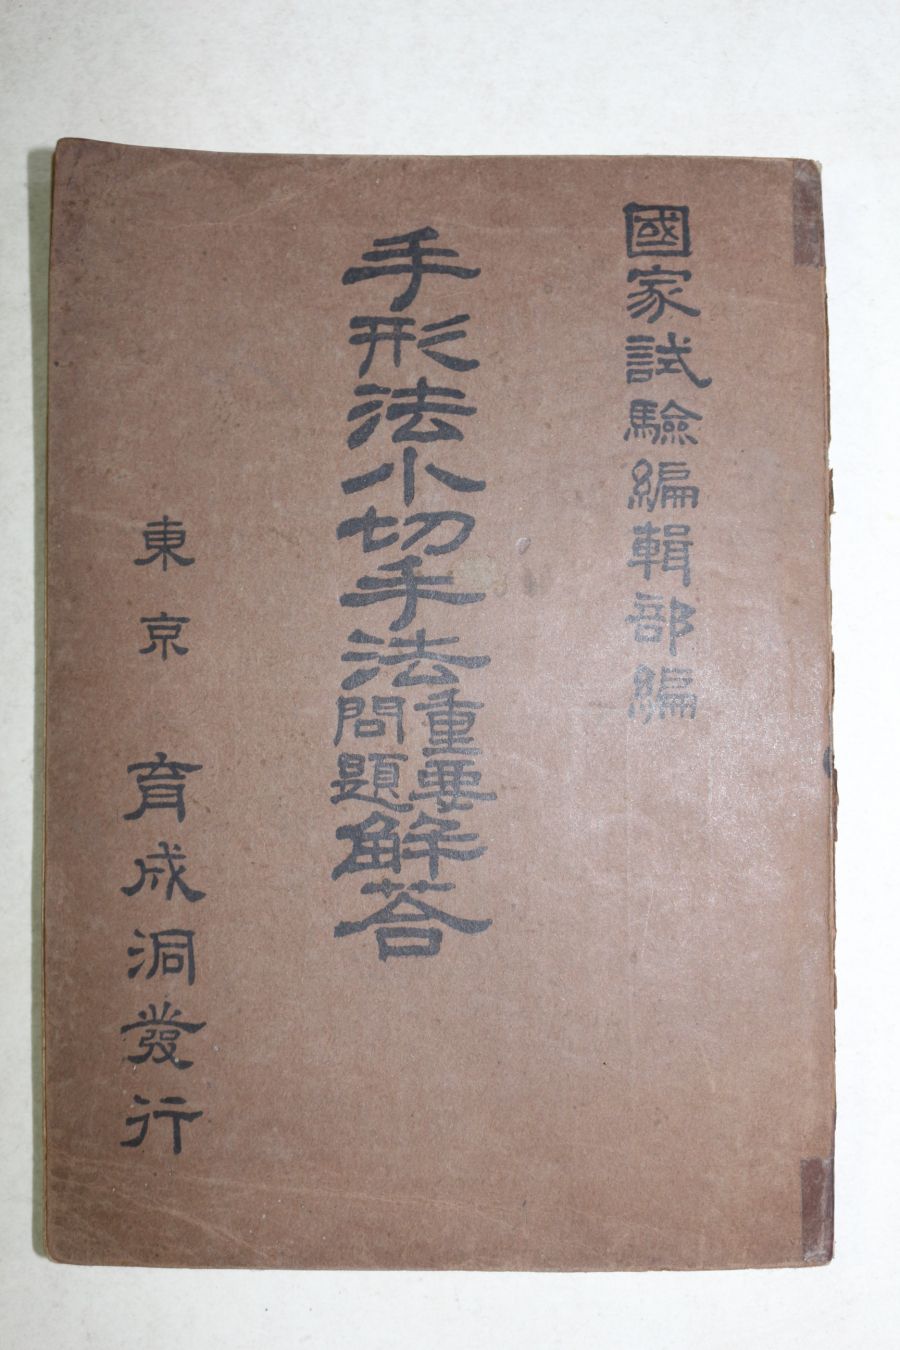 國家試驗編輯部編
手形法小切手法重要問題解答
東京 育成洞發行